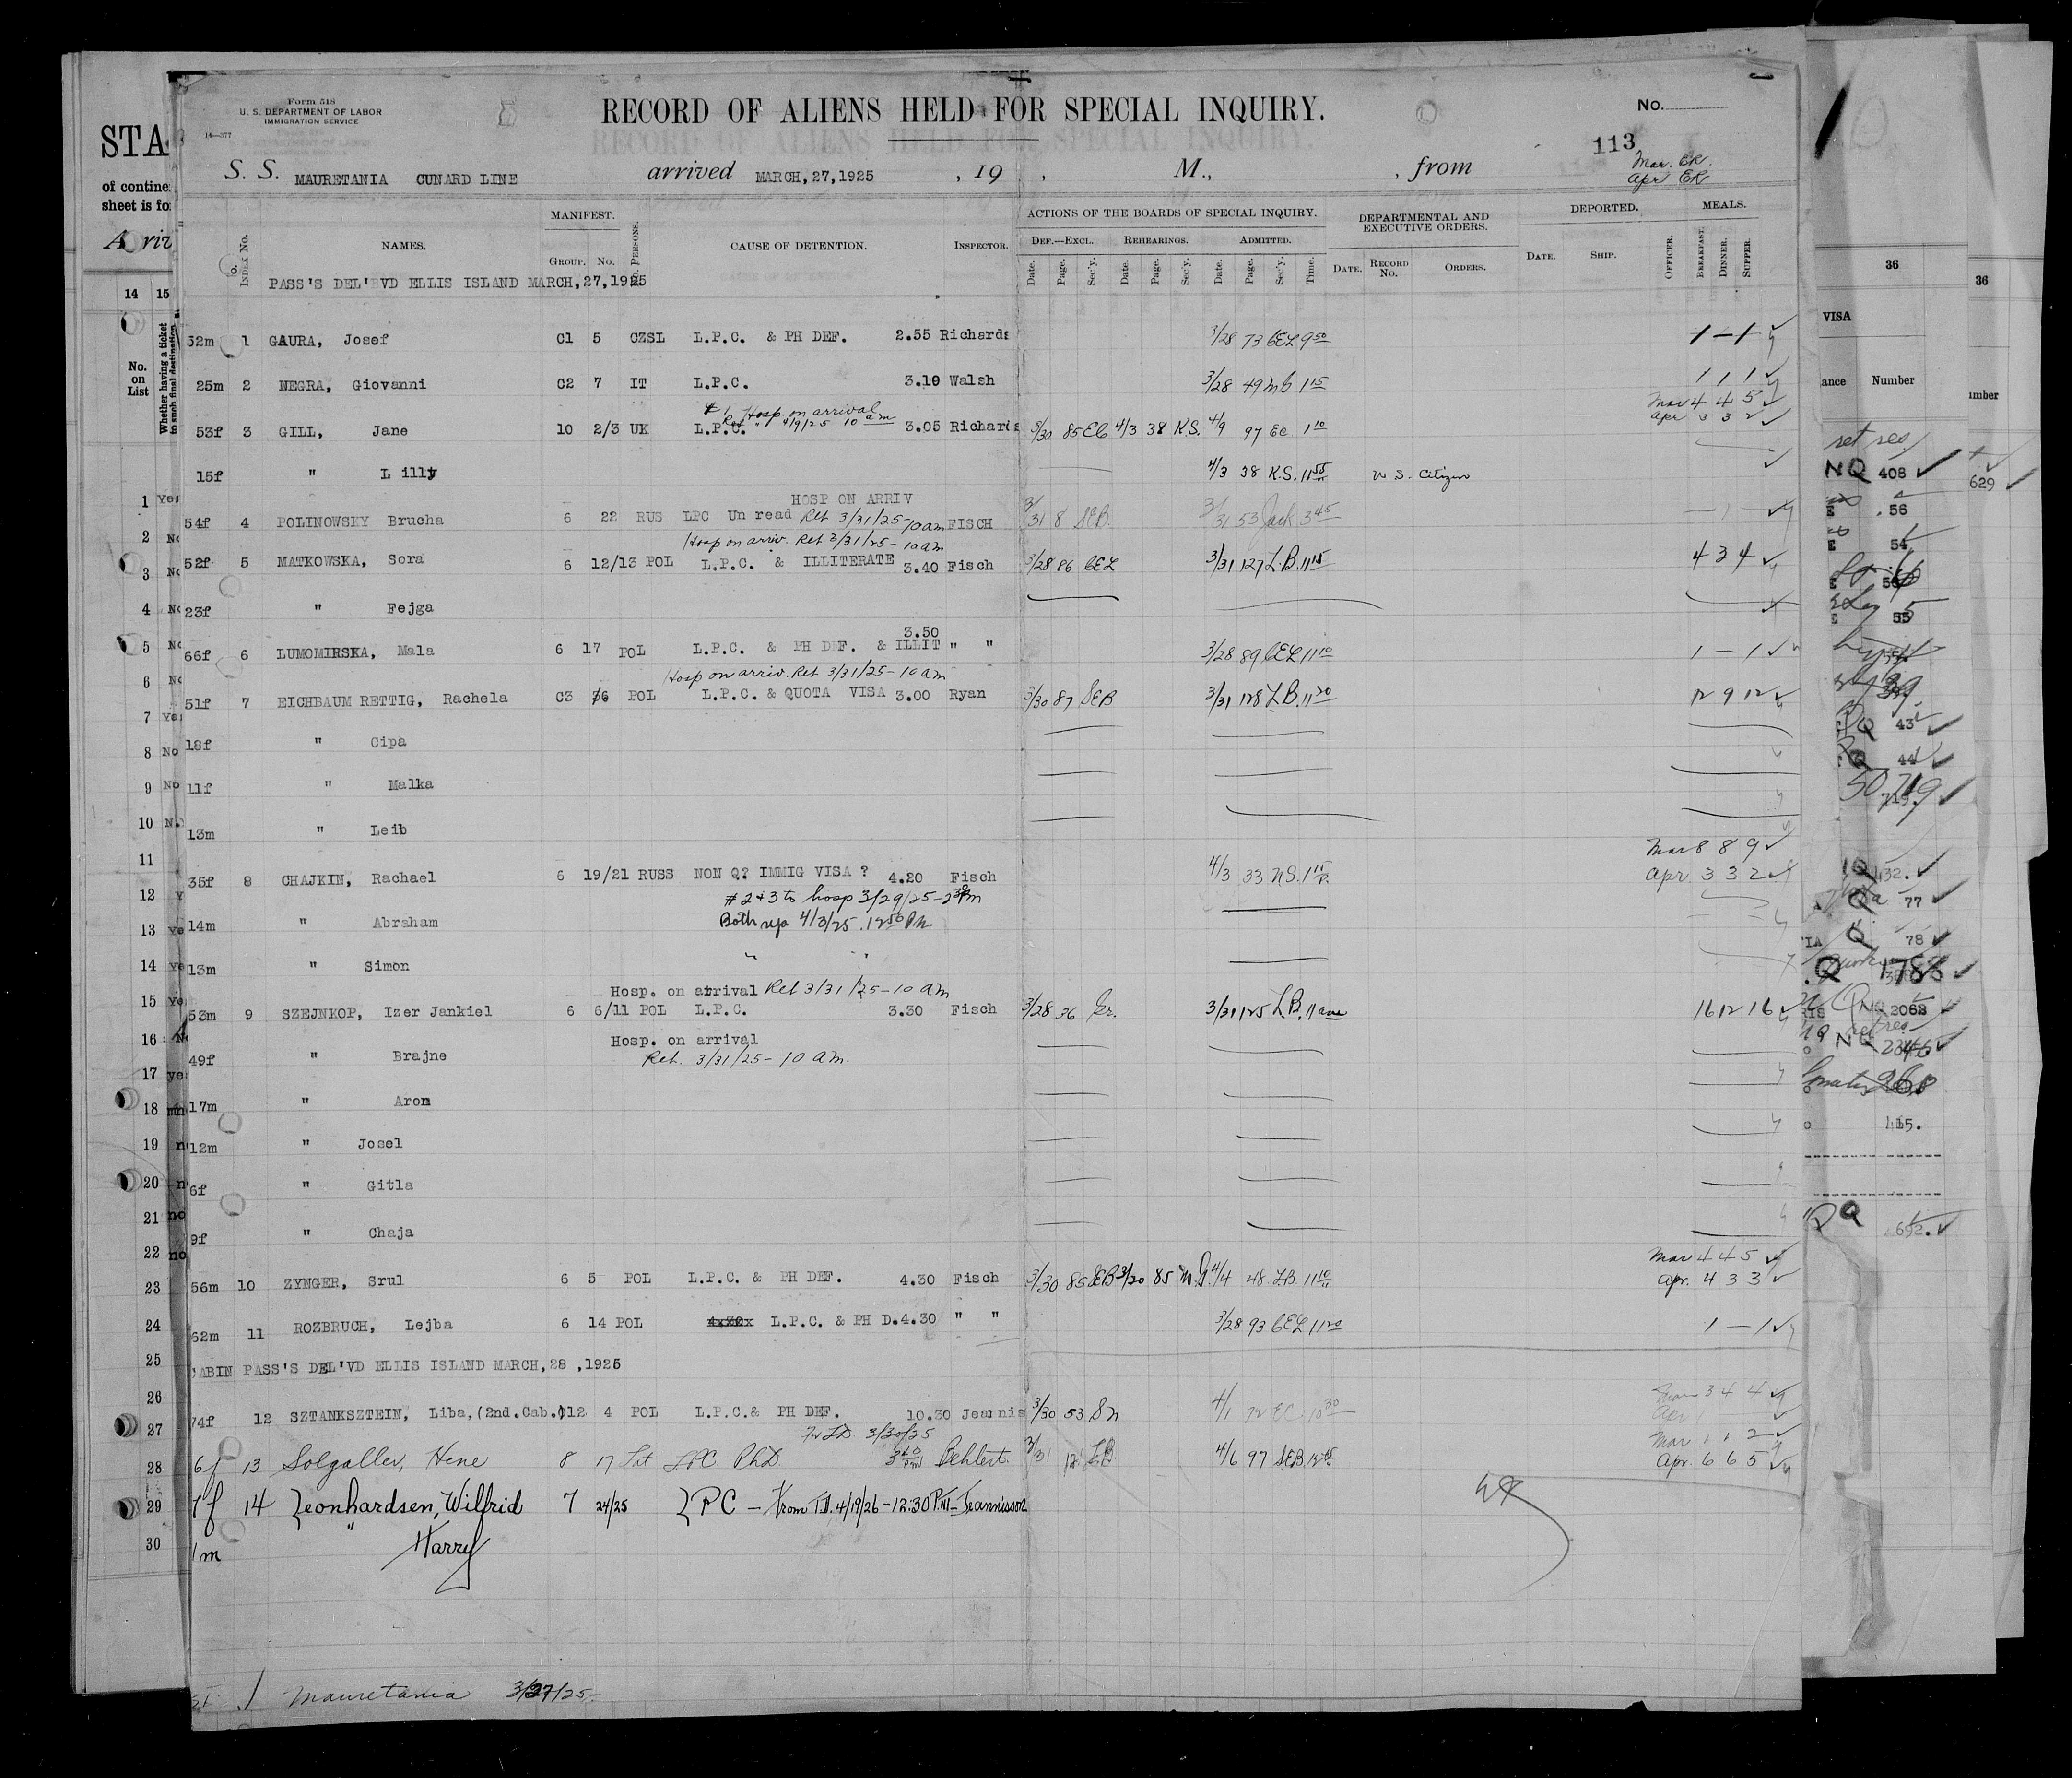 Form 518
U. S. DEPARTMENT OF LABOR
IMMIGRATION SERVICE
14—377
RECORD OF ALIENS HELD FOR SPECIAL INQUIRY.
No.
113
Mar. ER.
Apr ER
S. S. MAURETANIA CUNARD LINE arrived MARCH,27,1925 , 19 , M., , from
INDEX No. NAMES. MANIFEST. GROUP. No. No. PERSONS. CAUSE OF DETENTION. INSPECTOR. ACTIONS OF THE BOARDS OF SPECIAL INQUIRY. DEF.—EXCL. REHEARINGS. ADMITTED. DEPARTMENTAL AND EXECUTIVE ORDERS. DEPORTED. MEALS.
Date. Page. Sec'y. Date. Page. Sec'y. Date. Page. Sec'y. Time. DATE. RECORD No. ORDERS. DATE. SHIP. OFFICER. BREAKFAST. DINNER. SUPPER.
PASS'S DEL'BVD ELLIS ISLAND MARCH,27,1925
32m 1 GAURA, Josef C1 5 CZSL L.P.C. & PH DEF. 2.55 Richards 3/28 73 CEL 9 50 1 – 1
25m 2 NEGRA, Giovanni C2 7 IT L.P.C. 3.10 Walsh 3/28 49 1 15 1 1 1
#1 Hosp on arrival
Ret 4/9/25 10 am
Mar 4 4 5
Apr 3 3 2
53f 3 GILL, Jane 10 2/3 UK L.P.C. 3.05 Richards 3/30 85 EC 4/3 38 K.S. 4/9 97 EC 1 10
15f " Lilly 4/3 38 K.S. 11 55 U S. Citizen
HOSP ON ARRIV
54f 4 POLINOWSKY Brucha 6 22 RUS LPC Un read Ret 3/31/25 - 10 am FISCH 3/31 8 SEB 3/31 53 Jack 3 45 – 1 –
Hosp on arriv. Ret 3/31/25 - 10 am
52f 5 MATKOWSKA, Sora 6 12/13 POL L.P.C. & ILLITERATE 3.40 Fisch 3/28 86 CEL 3/31 127 L.B. 11 15 4 3 4
23f " Fejga
66f 6 LUMOMIRSKA, Mala 6 17 POL L.P.C. & PH DEF. & ILLIT 3.50 " " 3/28 89 CEL 11 10 1 – 1
Hosp on arriv. Ret 3/31/25 - 10 am
51f 7 EICHBAUM RETTIG, Rachela C3 36 POL L.P.C. & QUOTA VISA 3.00 Ryan 3/30 87 SEB 3/31 128 L.B. 11 20 12 9 12
18f " Cipa
11f " Malka
13m " Leib
Mar 8 8 9
35f 8 CHAJKIN, Rachael 6 19/21 RUSS NON Q? IMMIG VISA ? 4.20 Fisch 4/3 33 N.S. 1 15 Apr 3 3 2
#2 & 3 to hosp 3/29/25 - 2 30 pm
14m " Abraham Both 4/3/25 . 12 50 P.M
13m " Simon " "
Hosp. on arrival Ret 3/31/25 - 10 am
53m 9 SZEJNKOP, Izer Jankiel 6 6/11 POL L.P.C. 3.30 Fisch 3/28 36 Gr. 3/31 125 L.B. 11 am 16 12 16
Hosp. on arrival
49f " Brajne Ret. 3/31/25 - 10 am.
17m " Aron
12m " Josel
6f " Gitla
9f " Chaja
Mar 4 4 5
56m 10 ZYNGER, Srul 6 5 POL L.P.C. & PH DEF. 4.30 Fisch 3/30 85 SEB 3/20 85 M.G. 4/4 48 L.B. 11 10 Apr. 4 3 3
62m 11 ROZBRUCH, Lejba 6 14 POL L.P.C. & PH D. 4.30 " " 3/28 93 CEL 11 20 1 – 1
CABIN PASS'S DEL'VD ELLIS ISLAND MARCH,28 ,1925
74f 12 SZTANKSZTEIN, Liba,(2nd.Cab.)12 4 POL L.P.C.& PH DEF. 10.30 Jearnis 3/30 53 Sn 4/1 72 EC. 10 30 Mar 3 4 4
Apr 1
3/30/25
Mar 1 1 2
6f 13 Solgaller, Hene 8 17 Lit LPC PhD. 3 40 pm Behlert 3/31 12 LB. 4/6 97 SEB. 12 45 Apr. 6 6 5
7f 14 Leonhardsen, Wilfrid 7 24/25 LPC – From T.D. 4/19/26 – 12:30 P.M – Jeannisson
1m " Harry
Mauretania 3/27/25
STA
of contine
sheet is fo
Arriv
14 15
No. on List
Whether having a ticket to such final destination
1 Yes
2 No
3 No
4 No
5 No
6 No
7 Yes
8 No
9 No
10 No
11
12 Y
13 Ye
14 Ye
15 Ye
16 No
17 yes
18
19 n
20 n
21 no
22 no
23
24
25
26
27
28
29
30
36
VISA
ance Number
NQ 408
56
54
55
Q 43
Q 44
719
Q 432.
Q 77
Q 78
Q 1788
2068
NQ
268
415.
Q 692.
36
umber
629